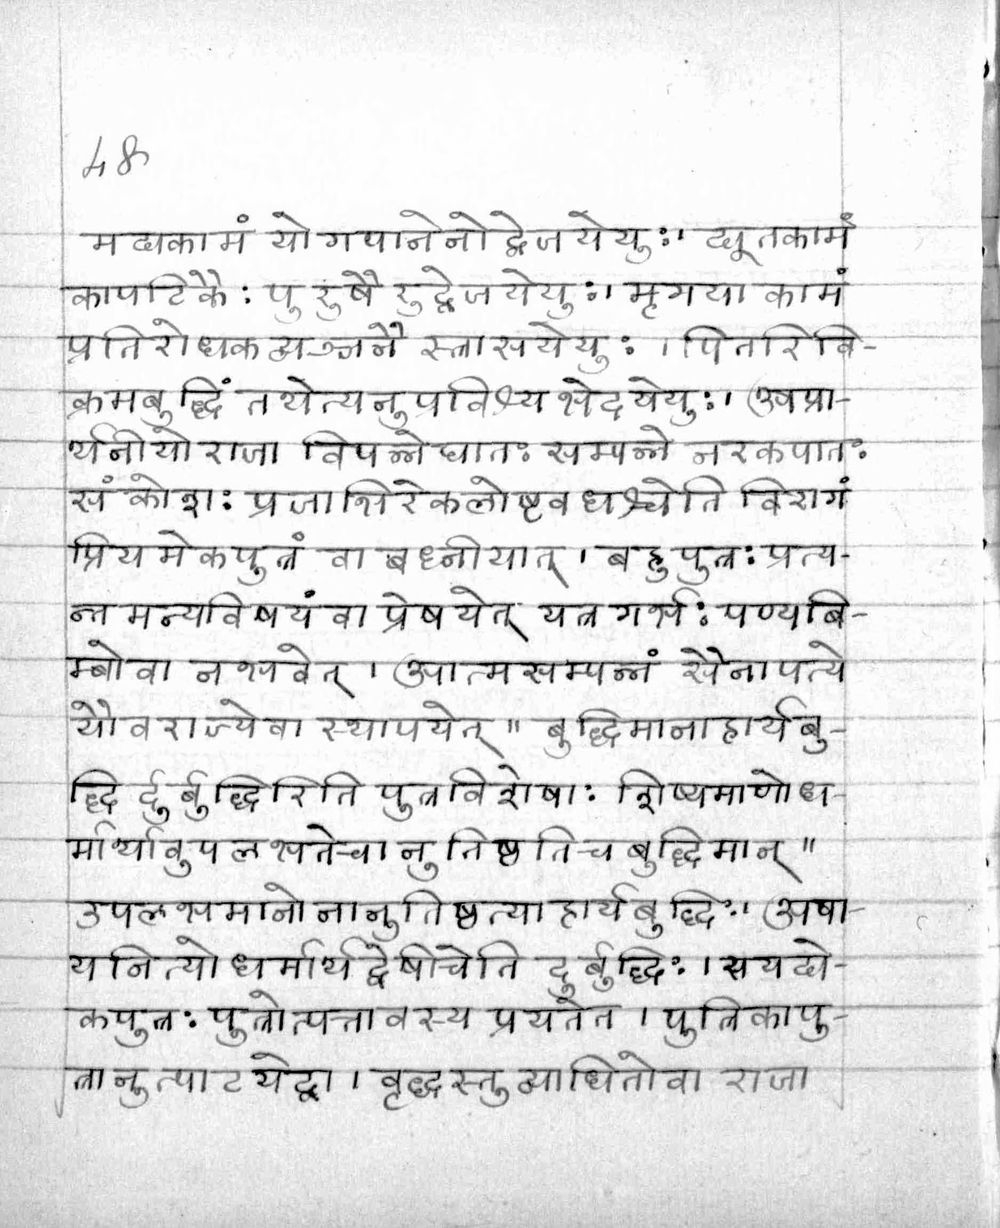 48
मद्यकामं योगपानेनोद्वेजयेयुः। द्यूतकामं
कापटिकैः पुरुषैरुद्वेजयेयुः। मृगयाकामं
प्रतिरोधकव्यञ्जनै स्त्रासयेयुः। पितरिवि-
क्रमबुद्धिं तथेत्यनुप्रविश्य भेदयेयुः। अप्रा-
र्थनीयो राजा विपन्नेघातः सम्पन्ने नरकपातः
संक्रोशः प्रजाभिरेकलोष्टवधश्चेति विरागं
प्रियमेकपुत्रं वा बध्नीयात्। बहुपुत्रः प्रत्य-
न्तमन्यविषयं वा प्रेषयेत् यत्र गर्भः पण्यबि-
म्बो वा न भवेत्। आत्मसम्पन्नं सैनापत्ये
यौवराज्ये वा स्थापयेत्॥ बुद्धिमानाहार्यबु-
द्धि र्दुर्बुद्धिरिति पुत्रविशेषाः शिष्यमाणो ध-
र्मार्थावुपलभते चानुतिष्ठति च बुद्धिमान्॥
उपलभमानो नानुतिष्ठत्याहार्यबुद्धिः। अपा-
यनित्यो धर्मार्थद्वेषी चेति दुर्बुद्धिः। स यद्ये-
कपुत्रः पुत्रोत्पत्तावस्य प्रयतेत। पुत्रिकापु-
त्रानुत्पाटयेद्वा। वृद्धस्तु व्याधितो वा राजा